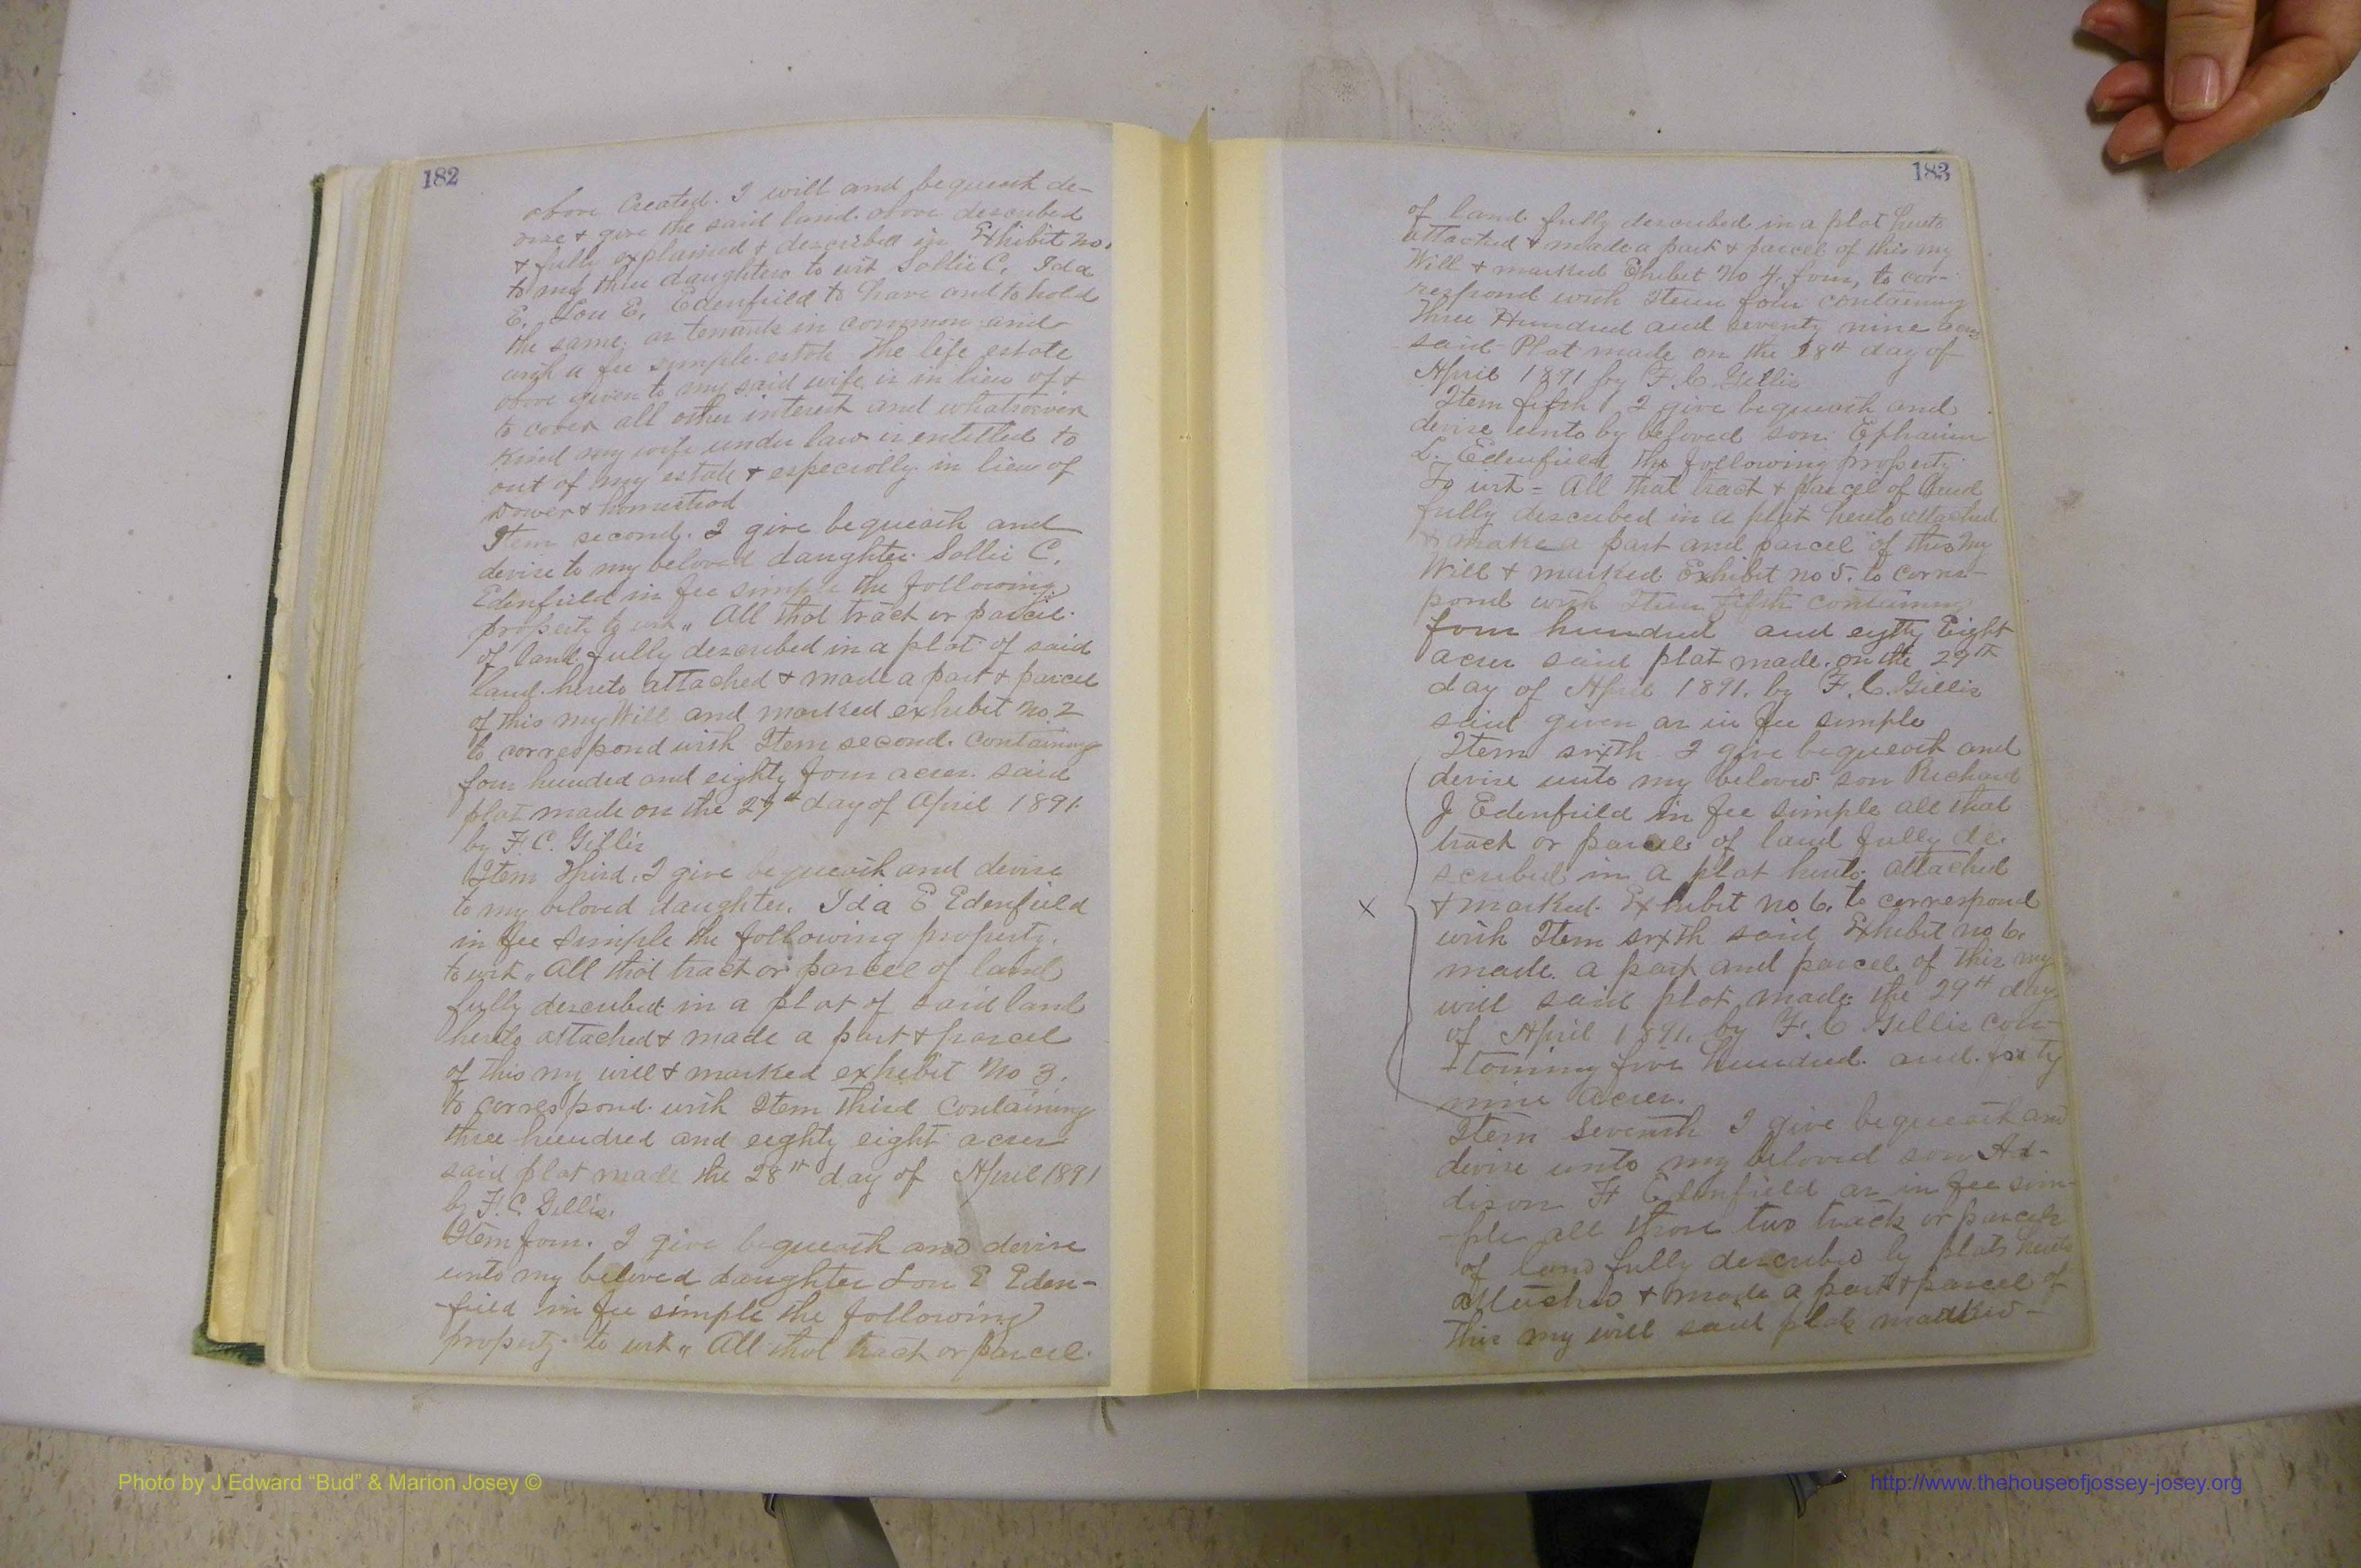 182
above created. I will and bequeath de-
vise & give the said land above described
& fully explained & described in Exhibit No.
to my three daughters to wit Sallie C. Ida
E. Lou E. Edenfield to have and to hold
the same as tenants in common and
with a fee simple estate The life estate
above given to my said wife is in lieu of &
to cover all other interest and whatsoever
kind my wife under law is entitled to
out of my estate & especially in lieu of
Dower & homestead
Item second. I give bequeath and
devise to my beloved daughter Sallie C.
Edenfield in fee simple the following
property to wit " All that tract or parcel
of land fully described in a plat of said
land hereto attached & made a part & parcel
of this my Will and marked exhibit No. 2
to correspond with Item second. Containing
four hunded and eighty four acres. said
plat made on the 29th day of April 1891.
by F. C. Gillis
Item Third. I give bequeath and devise
to my beloved daughter. Ida E Edenfield
in fee simple the following property.
to wit " All that tract or parcel of land
fully described in a plat of said land
hereto attached & made a part & parcel
of this my will & marked exhibit No 3.
to correspond with Item Third Containing
three hundred and eighty eight acres
said plat made the 28th day of April 1891
by F. C. Gillis.
Item four. I give bequeath and devise
unto my beloved daughter Lou E Eden-
-field in fee simple the following
property to wit " All that tract or parcel.
183
of land fully described in a plat hereto
attached & made a part & parcel of this my
Will & marked Exhibit No 4, four, to cor-
respond with Item four containing
Three Hundred and seventy nine acres
said Plat made on the 28th day of
April 1891 by F. C. Gillis
Item fifth I give bequeath and
devise unto by beloved son Ephraim
L. Edenfield the following property
To wit = All that tract & parcel of land
fully described in a plat hereto attached
& make a part and parcel of this my
Will & marked Exhibit no 5. to corres-
pond with Item fifth containing
four hundred and eighty Eight
acres said plat made on the 29th
day of April 1891. by F. C. Gillis
said given as in fee simple
Item sixth I give bequeath and
devise unto my beloved son Richard
J Edenfield in fee simple all that
tract or parcel of land fully de-
scribed in a plat hereto attached
x & marked Exhibit no 6. to correspond
with Item sixth said Exhibit no 6.
made a part and parcel of this my
will said plat made the 29th day
of April 1891. by F. C Gillis con-
-taining five hundred and forty
nine acres.
Item seventh I give bequeath and
devise unto my beloved son Ad-
dison F Edenfield as in fee sim-
-ple all those two tracts or parcels
of land fully described by plats hereto
attached & made a part & parcel of
this my will said plats marked -
Photo by J Edward “Bud” & Marion Josey ©
http://www.thehouseofjossey-josey.org